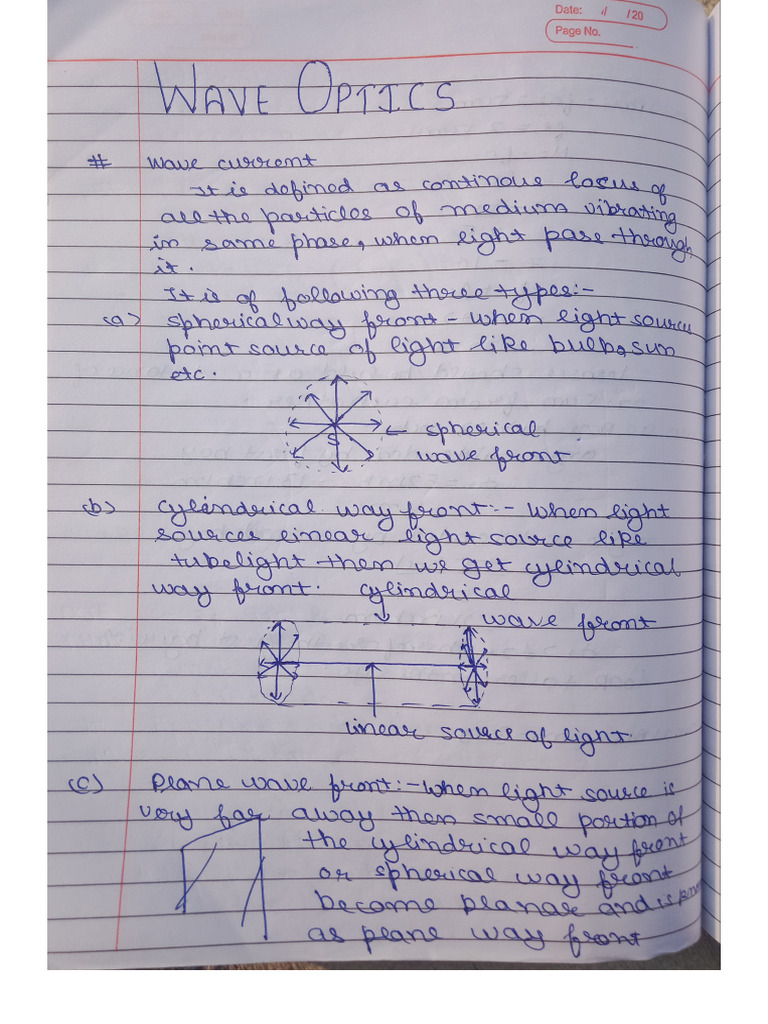 Date: // /20
Page No.
WAVE OPTICS
# wave current
It is defined as continous locus of
all the particles of medium vibrating
in same phase, when light pase through
it.
It is of following three types:-
(a) spherical way front - when light sources
point source of light like bulb, sun
etc.
S
← spherical
wave front
(b) cylindrical way front :- when light
sources linear light source like
tubelight then we get cylindrical
way front. cylindrical
wave front
linear source of light.
(c) Plane wave front:- when light source is
very far away then small portion of
the cylindrical way front
or spherical way front
become planar and is
as plane way front